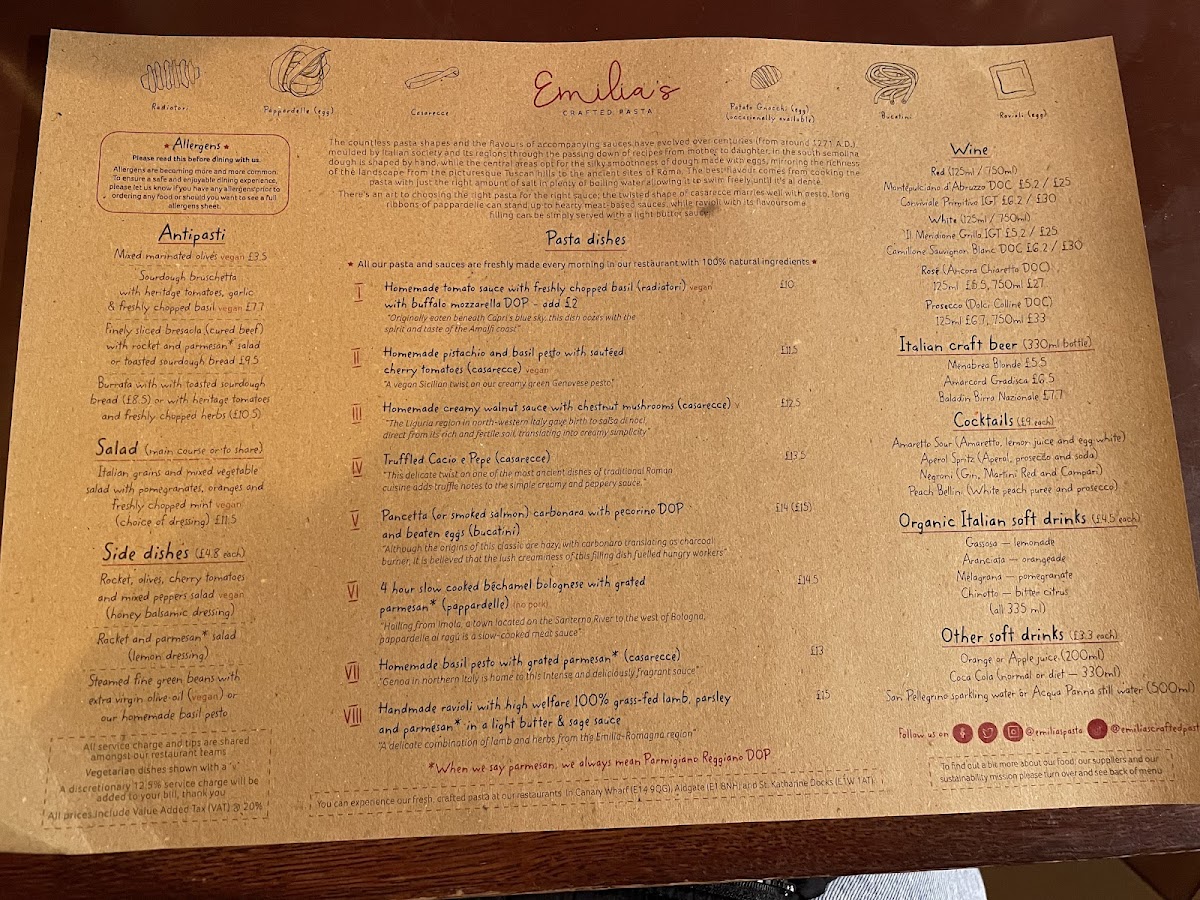 Radiatori
Pappardelle (egg)
Casarecce
Emilia's
CRAFTED PASTA
Potato Gnocchi (egg)
(occasionally available)
Bucatini
Ravioli (egg)
★ Allergens ★
Please read this before dining with us.
Allergens are becoming more and more common.
To ensure a safe and enjoyable dining experience,
please let us know if you have any allergens prior to
ordering any food or should you want to see a full
allergens sheet.
Antipasti
Mixed marinated olives vegan £3.5
Sourdough bruschetta
with heritage tomatoes, garlic
& freshly chopped basil vegan £7.7
Finely sliced bresaola (cured beef)
with rocket and parmesan* salad
or toasted sourdough bread £9.5
Burrata with with toasted sourdough
bread (£8.5) or with heritage tomatoes
and freshly chopped herbs (£10.5)
Salad (main course or to share)
Italian grains and mixed vegetable
salad with pomegranates, oranges and
freshly chopped mint vegan
(choice of dressing) £11.5
Side dishes (£4.8 each)
Rocket, olives, cherry tomatoes
and mixed peppers salad vegan
(honey balsamic dressing)
Rocket and parmesan* salad
(lemon dressing)
Steamed fine green beans with
extra virgin olive oil (vegan) or
our homemade basil pesto
All service charge and tips are shared
amongst our restaurant teams
Vegetarian dishes shown with a "v"
A discretionary 12.5% service charge will be
added to your bill, thank you
All prices include Value Added Tax (VAT) @ 20%
The countless pasta shapes and the flavours of accompanying sauces have evolved over centuries (from around 1271 A.D.),
moulded by Italian society and its regions through the passing down of recipes from mother to daughter, in the south semolina
dough is shaped by hand, while the central areas opt for the silky smoothness of dough made with eggs, mirroring the richness
of the landscape from the picturesque Tuscan hills to the ancient sites of Roma. The best flavour comes from cooking the
pasta with just the right amount of salt in plenty of boiling water allowing it to swim freely until it's al dente.
There's an art to choosing the right pasta for the right sauce; the twisted shape of casarecce marries well with pesto, long
ribbons of pappardelle can stand up to hearty meat-based sauces, while ravioli with its flavoursome
filling can be simply served with a light butter sauce
Pasta dishes
★ All our pasta and sauces are freshly made every morning in our restaurant with 100% natural ingredients ★
I Homemade tomato sauce with freshly chopped basil (radiatori) vegan £10
with buffalo mozzarella DOP - add £2
"Originally eaten beneath Capri's blue sky, this dish oozes with the
spirit and taste of the Amalfi coast"
II Homemade pistachio and basil pesto with sautéed £11.5
cherry tomatoes (casarecce) vegan
"A vegan Sicilian twist on our creamy green Genovese pesto"
III Homemade creamy walnut sauce with chestnut mushrooms (casarecce) v £12.5
"The Liguria region in north-western Italy gave birth to salsa di noci,
direct from its rich and fertile soil, translating into creamy simplicity"
IV Truffled Cacio e Pepe (casarecce) £13.5
"This delicate twist on one of the most ancient dishes of traditional Roman
cuisine adds truffle notes to the simple creamy and peppery sauce."
V Pancetta (or smoked salmon) carbonara with pecorino DOP £14 (£15)
and beaten eggs (bucatini)
"Although the origins of this classic are hazy, with carbonara translating as charcoal
burner, it is believed that the lush creaminess of this filling dish fuelled hungry workers"
VI 4 hour slow cooked béchamel bolognese with grated £14.5
parmesan* (pappardelle) (no pork)
"Hailing from Imola, a town located on the Santerno River to the west of Bologna,
pappardelle al ragù is a slow-cooked meat sauce"
VII Homemade basil pesto with grated parmesan* (casarecce) £13
"Genoa in northern Italy is home to this intense and deliciously fragrant sauce"
VIII Handmade ravioli with high welfare 100% grass-fed lamb, parsley £15
and parmesan* in a light butter & sage sauce
"A delicate combination of lamb and herbs from the Emilia-Romagna region"
*When we say parmesan, we always mean Parmigiano Reggiano DOP
You can experience our fresh, crafted pasta at our restaurants in Canary Wharf (E14 9QG), Aldgate (E1 8NH) and St. Katharine Docks (E1W 1AT)
Wine
Red (125ml / 750ml)
Montepulciano d'Abruzzo DOC £5.2 / £25
Conviviale Primitivo IGT £6.2 / £30
White (125ml / 750ml)
Il Meridione Grillo IGT £5.2 / £25
Camillone Sauvignon Blanc DOC £6.2 / £30
Rosé (Ancora Chiaretto DOC)
125ml £6.5, 750ml £27
Prosecco (Dolci Colline DOC)
125ml £6.7, 750ml £33
Italian craft beer (330ml bottle)
Menabrea Blonde £5.5
Amarcord Gradisca £6.5
Baladin Birra Nazionale £7.7
Cocktails (£9 each)
Amaretto Sour (Amaretto, lemon juice and egg white)
Aperol Spritz (Aperol, prosecco and soda)
Negroni (Gin, Martini Red and Campari)
Peach Bellini (White peach puree and prosecco)
Organic Italian soft drinks (£4.5 each)
Gassosa — lemonade
Aranciata — orangeade
Melagrana — pomegranate
Chinotto — bitter citrus
(all 335 ml)
Other soft drinks (£3.3 each)
Orange or Apple juice (200ml)
Coca Cola (normal or diet — 330ml)
San Pellegrino sparkling water or Acqua Panna still water (500ml)
Follow us on @emiliaspasta @emiliascraftedpasta
To find out a bit more about our food, our suppliers and our
sustainability mission please turn over and see back of menu